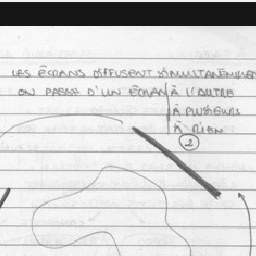 LES ÉCRANS DIFFUSENT SIMULTANÉMENT
ON PASSE D'UN ÉCRAN À L'AUTRE
À PLUSIEURS
À RIEN
2